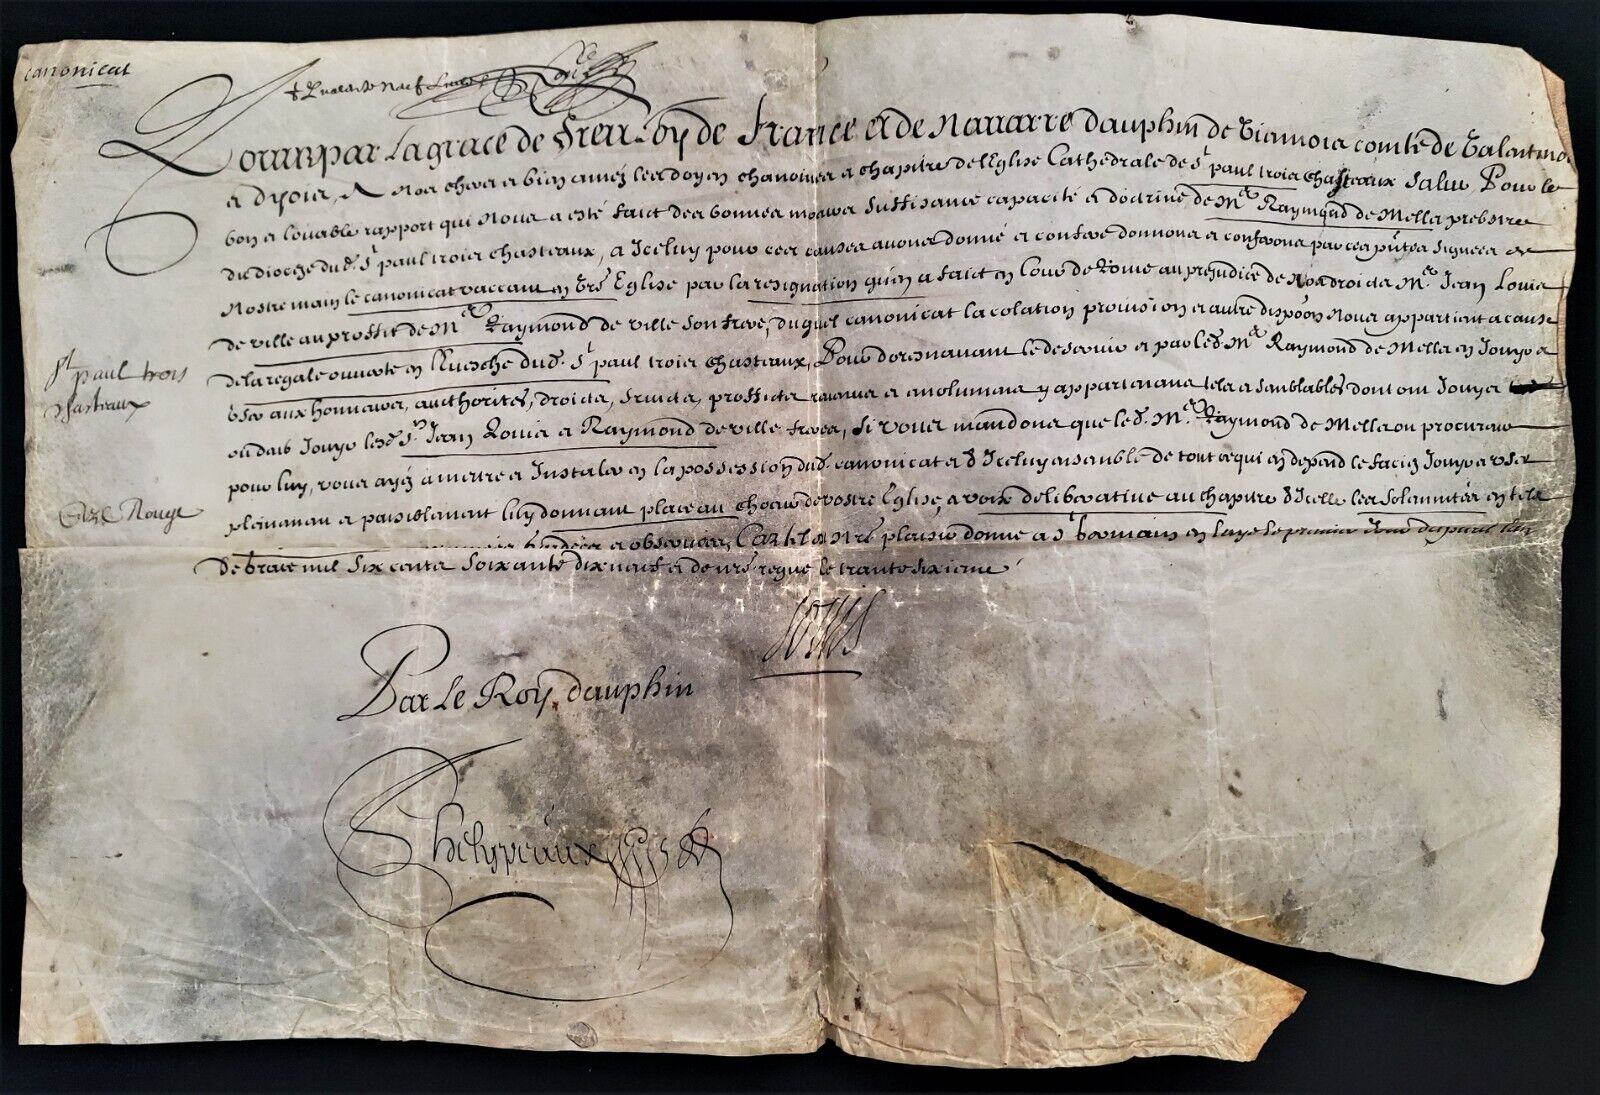 canonicat
Louis par La grace de Dieu Roy de France et de Navarre dauphin de Viennois comte de Valentinois
et dyois, A Nos chers et bien amez les doyen chanoines et chapitre de l'Eglise Cathedrale de St paul trois chasteaux Salut, Pour le
bon et louable rapport qui Nous a esté faict des bonnes moeurs suffisance capacité et doctrine de Mre Raymond de Mella prebstre
du diocese dud. St paul trois chasteaux, a Iceluy pour ces causes avons donné et conferé donnons et conferons par ces pntes signées de
Nostre main le canonicat vaccant en vre Eglise par la resignation qu'en a faict en Cour de Rome au prejudice de Nos droicts Mre Jean Louis
de ville au proffit de Mre Raymond de ville son frere, duquel canonicat la colation provision et autre dispoon Nous appartient a cause
de la regale ouverte en l'Evesché dud. St paul trois chasteaux, Pour doresnavant le desservir et par led. Mre Raymond de Mella en Jouyr et
user aux honneurs, authorités, droicts, fruicts, profficts revenus et emolumens y appartenans tels et semblables dont ont Jouy et
ou deub Jouyr lesd. Srs Jean Louis et Raymond de ville freres, Si vous mandons que led. Mre Raymond de Mella ou procureur
pour luy, vous ayez a mettre et Instaler en la possession dud. canonicat et d'Iceluy ensemble de tout ce qui en depend le faciez Jouyr et user
plainement et paisiblement luy donnant place au choeur de vostre Eglise, et voix deliberative au chapitre d'Icelle les solemnitez en tels
et observées, Car tel est Nre plaisir donné a St Germain en laye le premier Jour d'apvril l'an
de grace mil six cents soixante dix neuf et de nre regne le trante sixieme
St paul trois
chasteaux
Rouge
Louis
Par Le Roy dauphin
Phelypeaux